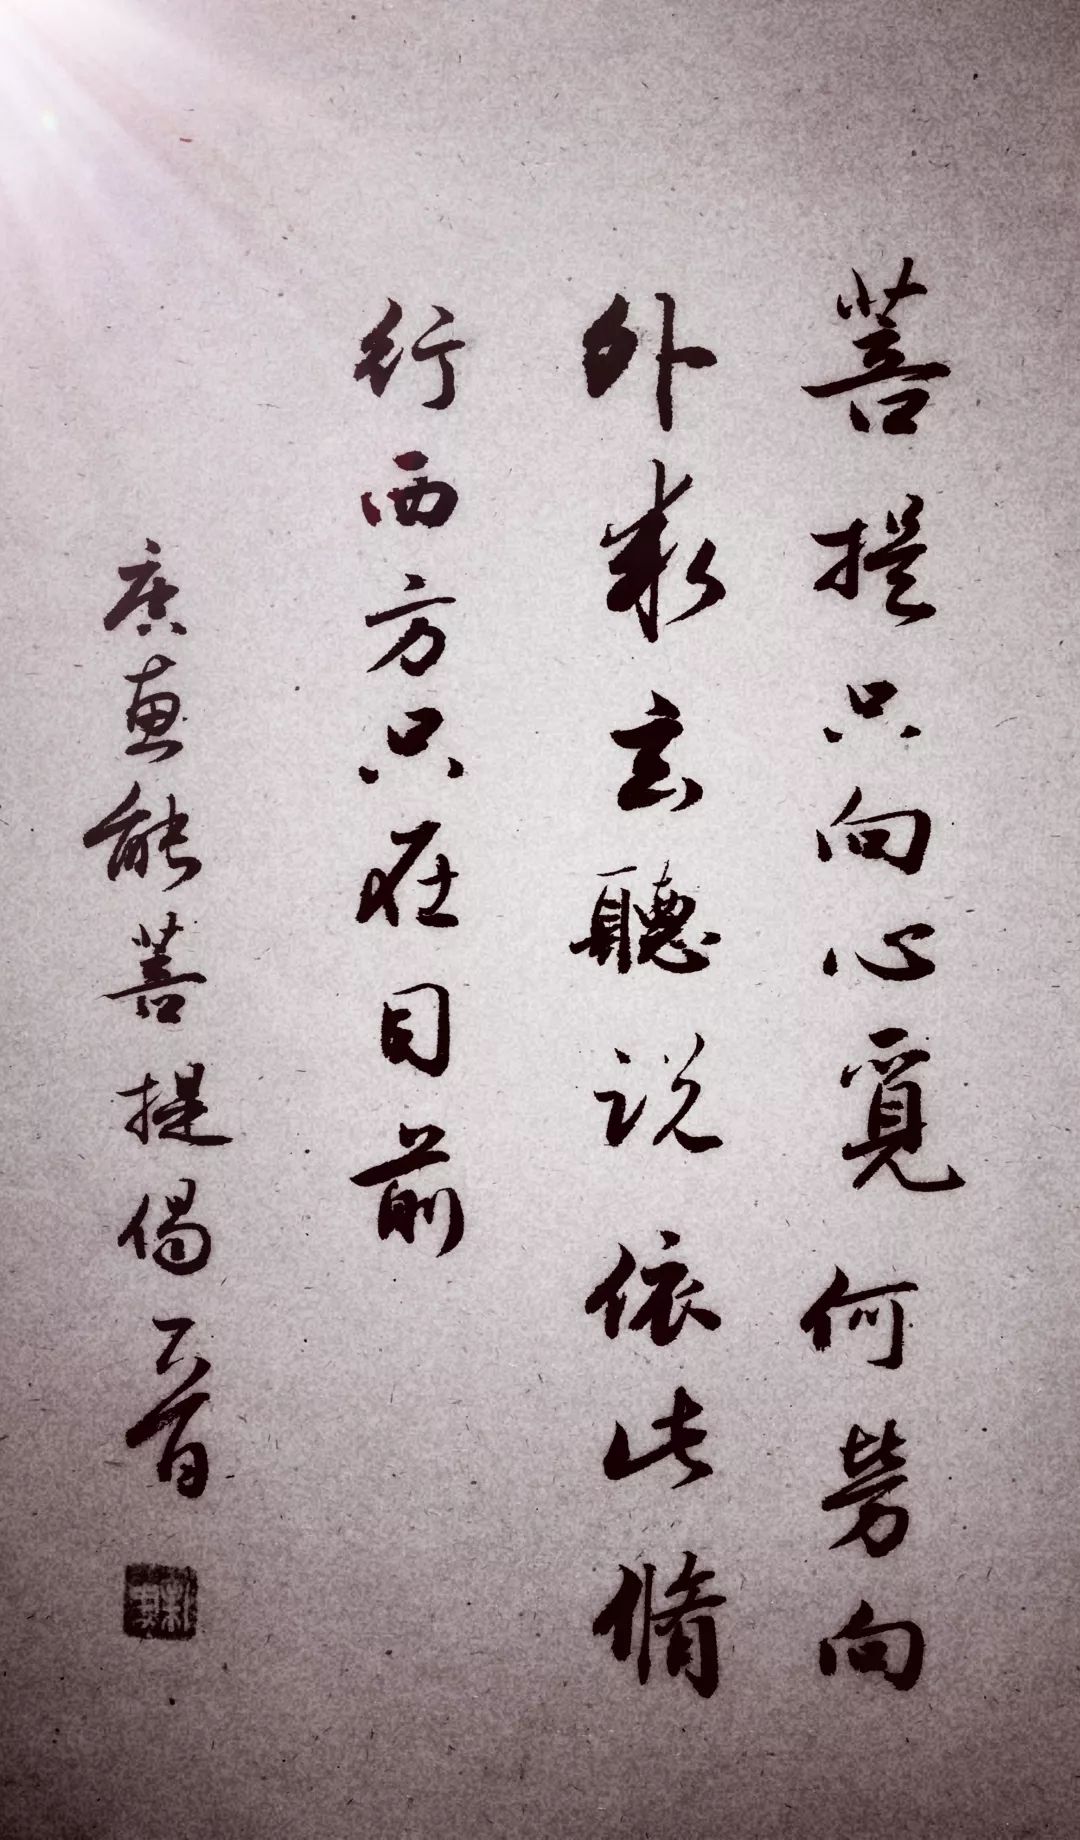 菩提只向心覓何勞向
外求玄聽説依此脩
行西方只在目前
唐惠能菩提偈首